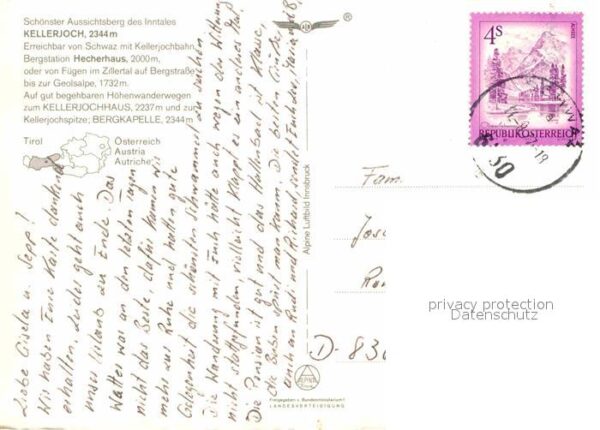 Schönster Aussichtsberg des Inntales
KELLERJOCH, 2344 m
Erreichbar von Schwaz mit Kellerjochbahn,
Bergstation Hecherhaus, 2000 m,
oder von Fügen im Zillertal auf Bergstraße
bis zur Geolsalpe, 1732 m.
Auf gut begehbaren Höhenwanderwegen
zum KELLERJOCHHAUS, 2237 m und zur
Kellerjochspitze; BERGKAPELLE, 2344 m
Tirol
Österreich
Austria
Autriche
Liebe Gisela u. Sepp!
Wir haben Eure Karte dankend
erhalten. Leider geht auch
unser Urlaub zu Ende. Das
Wetter war an den letzten Tagen
nicht das Beste, dafür kamen wir
mehr zur Ruhe und hatten gute
Gelegenheit die schönsten Schwammerl zu suchen
Die Wanderung mit Euch hätte auch wegen der Witterung
nicht stattgefunden, vielleicht klappt es ein anderes Mal.
Die Pension ist gut und das Hallenbad ist Klasse,
die Buben spürt man kaum. Die besten Grüße,
auch an Rudi und Richard, sendet
Alpine Luftbild Innsbruck
ALPINE
Freigegeben v. Bundesministerium f.
LANDESVERTEIDIGUNG
4S
REPUBLIK ÖSTERREICH
Fam.
D-830
privacy protection
Datenschutz